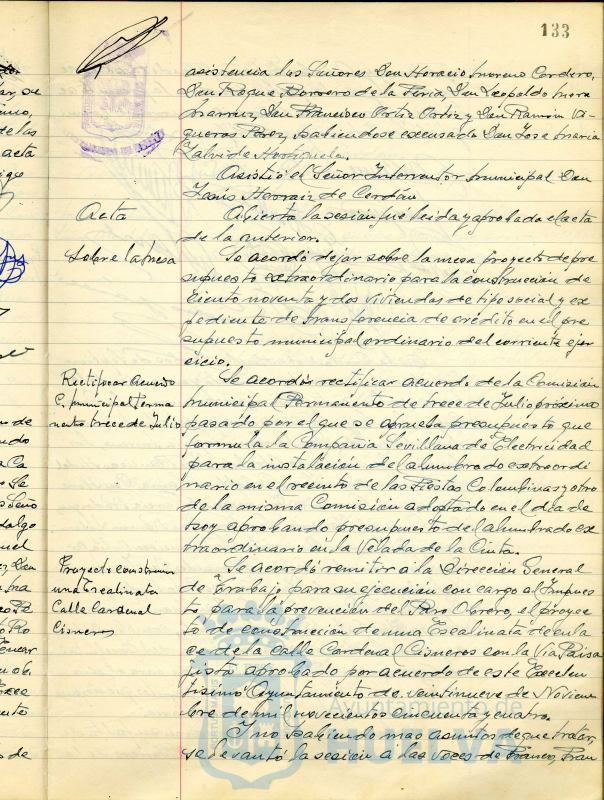 133
asistencia los Señores Don Horacio Moreno Cordero,
Don Roque Borrero de la Feria, Don Leopoldo Mora
Don Francisco Ortiz Ortiz y Don Ramón Vi-
gueras Pérez, habiendose excusado Don Jose Maria
Zalvide Hortiguela.
Asistió el Señor Interventor Municipal Don
Jesús Herraiz de Cerdán.
Acta
Abierta la sesión fué leida y aprobada el acta
de la anterior.
Sobre la mesa
Se acordó dejar sobre la mesa proyecto de pre
supuesto extraordinario para la construcción de
Ciento noventa y dos viviendas de tipo social y ex
pediente de transferencia de crédito en el pre
supuesto municipal ordinario del corriente ejer
cicio.
Rectificar acuerdo
C. municipal Perma
nente trece de Julio
Se acordó rectificar acuerdo de la Comisión
Municipal Permanente de trece de Julio próximo
pasado por el que se aprueba presupuesto que
formula la Compañia Sevillana de Electricidad
para la instalación del alumbrado extraordi
nario en el recinto de las Fiestas Colombinas y otro
de la misma Comisión adoptado en el dia de
hoy aprobando presupuesto del alumbrado ex
traordinario en la Velada de la Cinta.
Proyecto construcción
una Escalinata
Calle Cardenal
Cisneros
Se acordó remitir a la Dirección General
de Trabajo para su ejecución con cargo al Impues
to para la prevención del Paro Obrero, el proyec
to de construcción de una Escalinata de enla
ce de la calle Cardenal Cisneros con la Via Paisa
jista aprobado por acuerdo de este Excelen
tisimo Ayuntamiento de veintinueve de Noviem
bre de mil novecientos cincuenta y cuatro.
Y no habiendo mas asuntos de que tratar,
se levantó la sesión a las voces de Franco, Fran
Ayuntamiento de
HUELVA